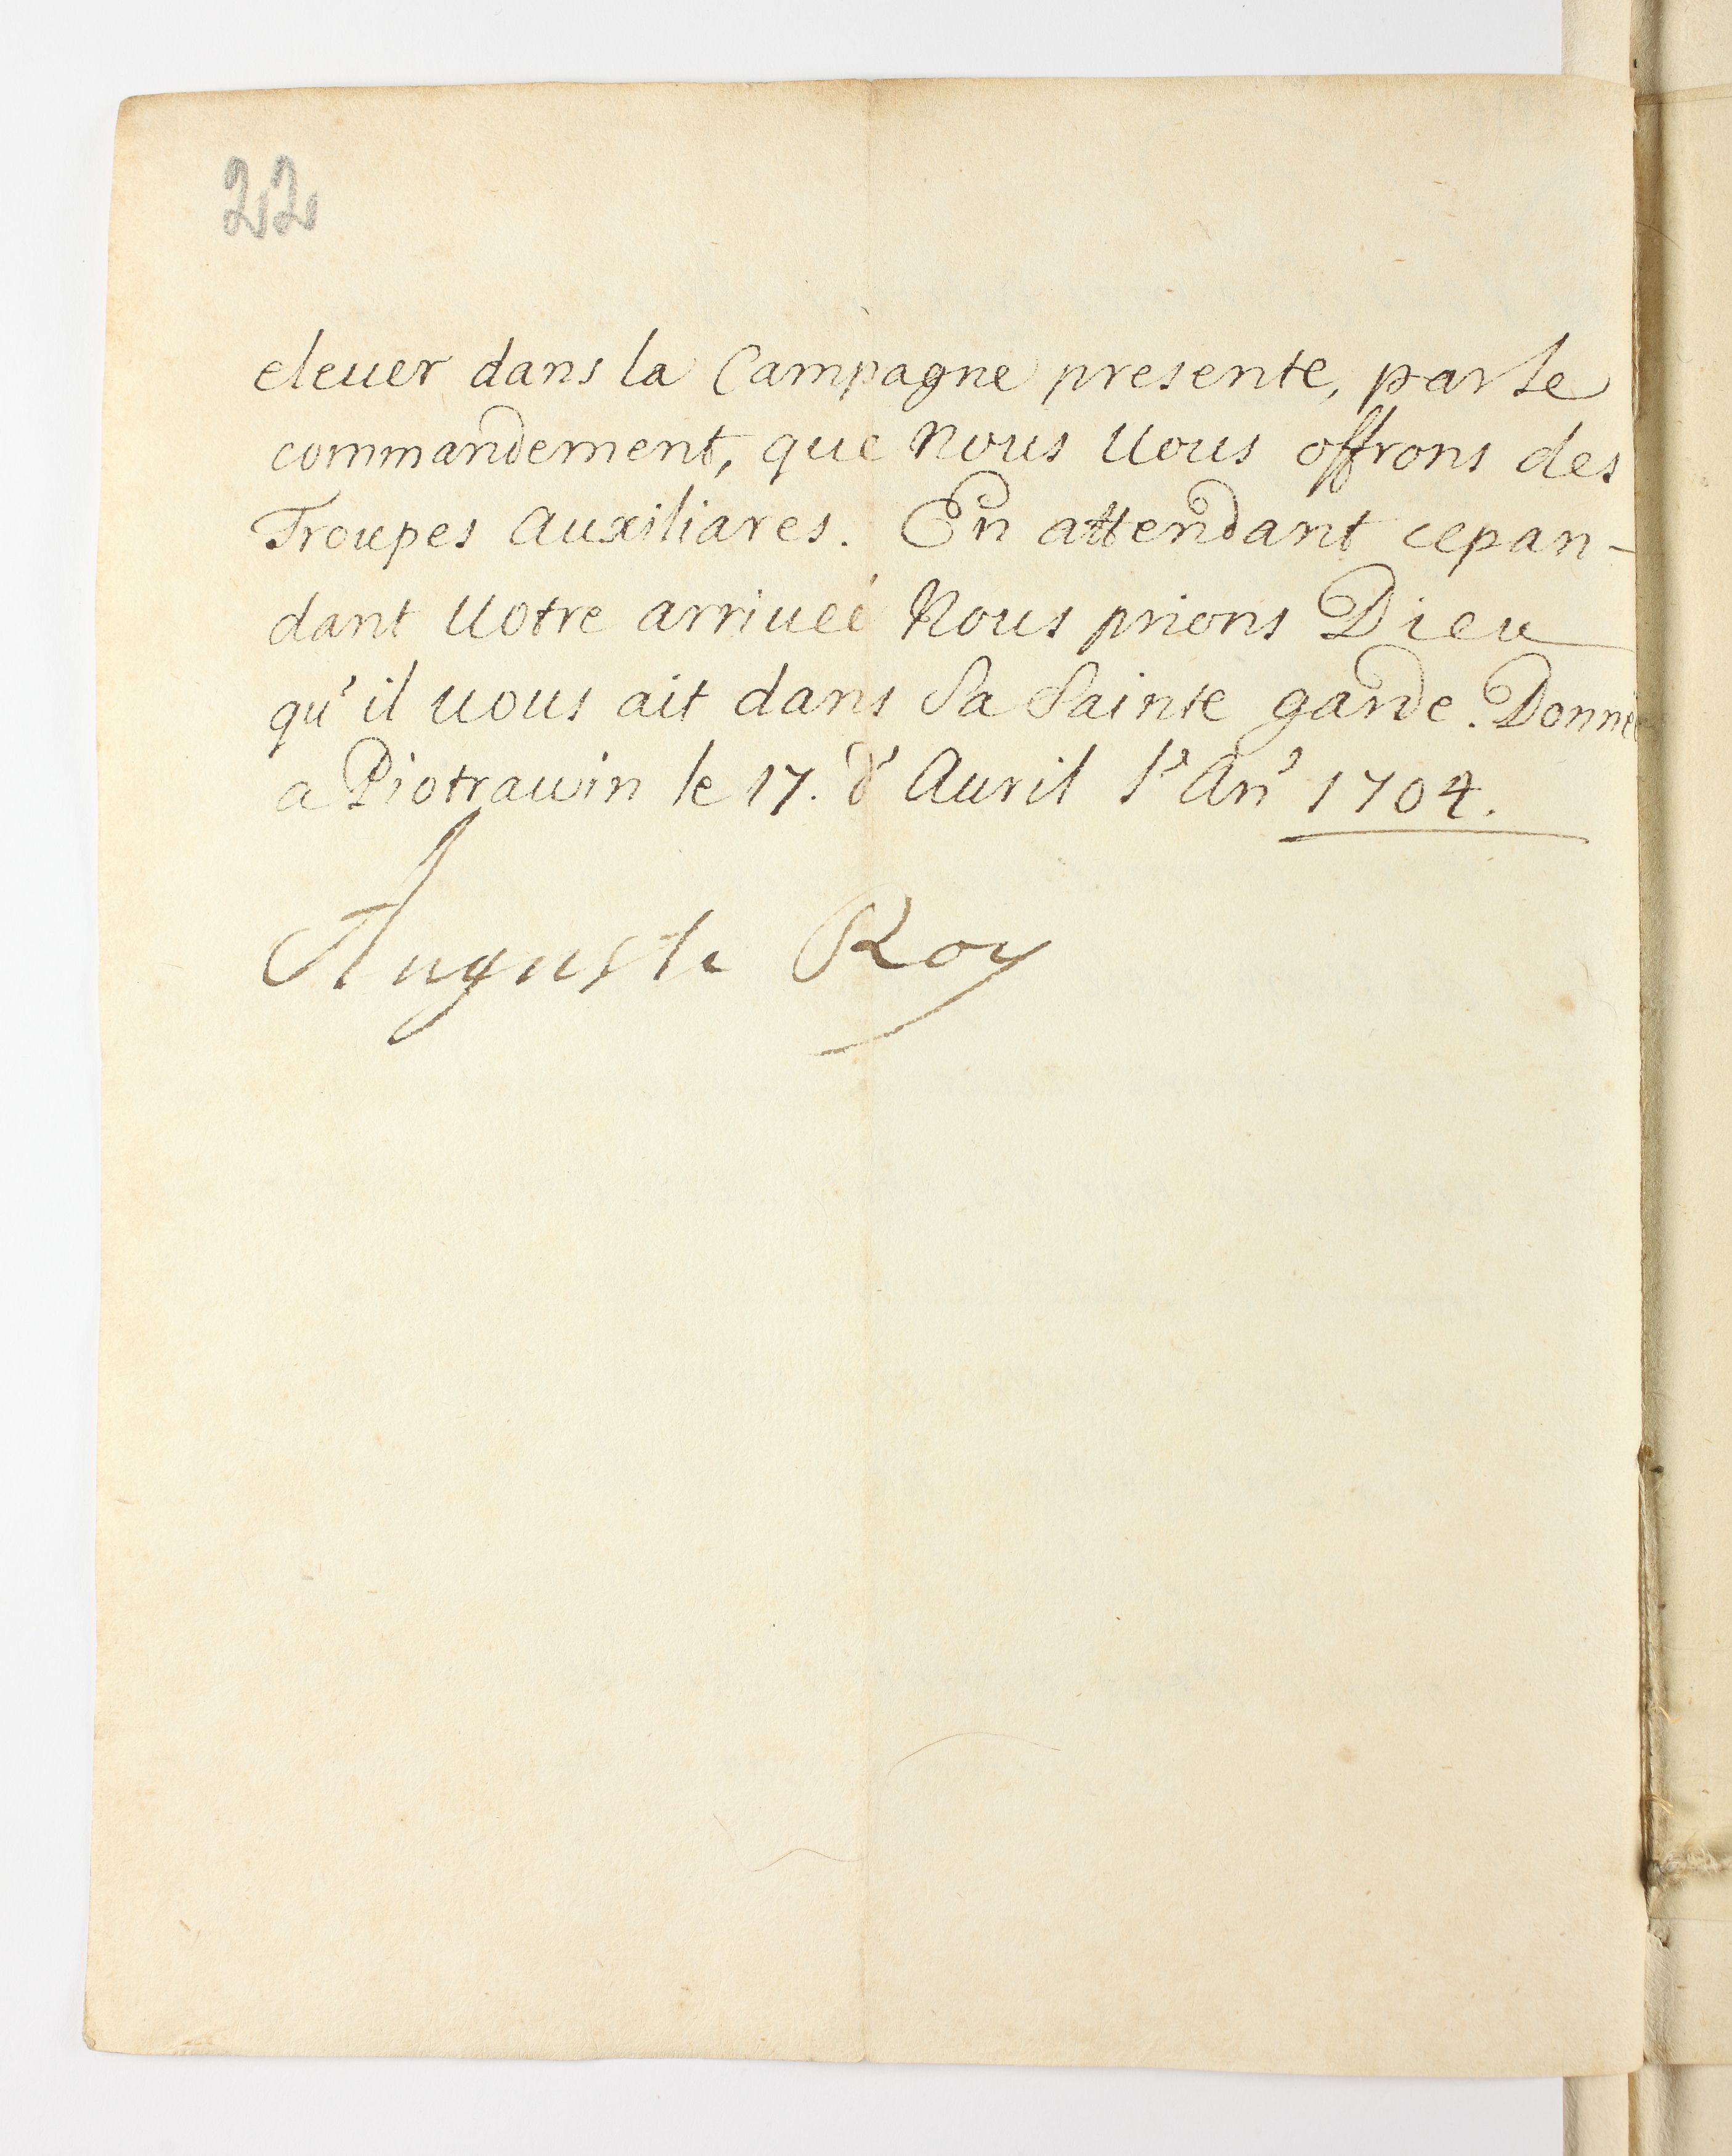 22
eleuer dans la Campagne presente, par le
commandement, que Nous Uous offrons des
Troupes Auxiliares. En attendant cepan-
dant Uotre arriueé Nous prions Dieu
qu'il uous ait dans Sa Sainte garde. Donné
a Piotrawin le 17. d'Auril l'An' 1704.
Auguste Roy